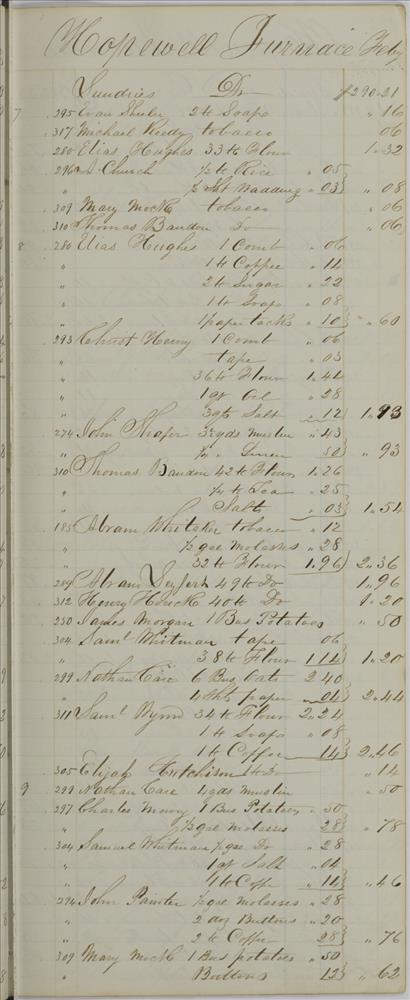 Hopewell Furnace Feby
Sundries Dr $290.21
7 295 Evan Shuler 2 ℔ Soap " 16
317 Michael Reedy tobacco 06
280 Elias Hughes 33 ℔ Flour 1.32
296 A Church ½ ℔ Rice " 05
" Sht Wadding " 03 } " 08
309 Mary Mock tobacco " 06
310 Thomas Baudon Do " 06
8 280 Elias Hughes 1 Comb " 06
" 1 ℔ Coffee " 14
" 2 ℔ Sugar " 22
" 1 ℔ Soap " 08
" 1 paper tacks " 10 } " 60
293 Christ Henry 1 Comb " 06
" tape " 03
" 36 ℔ Flour 1.44
" 1 qt Oil " 28
" 3 qts Salt " 12 } 1.93
274 John Shafer 3½ yds muslin " 43
" " Linen 50 } " 93
310 Thomas Baudon 42 ℔ Flour 1.26
" ¼ ℔ Tea " 25
" Salt " 03 } 1.54
185 Abram Whitaker tobacco " 12
" ½ gal Molasses " 28
" 52 ℔ Flour 1.96 } 2.36
289 Abram Seifert 49 ℔ Do 1.96
312 Henry Houck 40 ℔ Do 1.20
250 James Morgan 1 Bus Potatoes " 50
304 Saml Whitman tape 06
" 38 ℔ Flour 1 14 } 1.20
299 Nathan Care 6 Bus Oats 2 40
" 4 Shts paper 04 } 2.44
311 Saml Byrd 34 ℔ Flour 2.24
" 1 ℔ Soap " 08
" 1 ℔ Coffee 14 } 2.46
305 Elijah Hutchison 1 ℔ Do " 14
9 299 Nathan Care 4 yds muslin " 50
297 Charles Mowry 1 Bus Potatoes " 50
" ½ gal molasses 28 } " 78
304 Samuel Whitman ½ gal Do " 28
" 1 qt Salt " 04
" 1 ℔ Coffe " 14 } " 46
294 John Painter ½ gal molasses " 28
" 2 doz Buttons " 20
" 2 ℔ Coffee 28 } " 76
309 Mary Mock 1 Bus potatoes " 50
" Buttons 12 } " 62